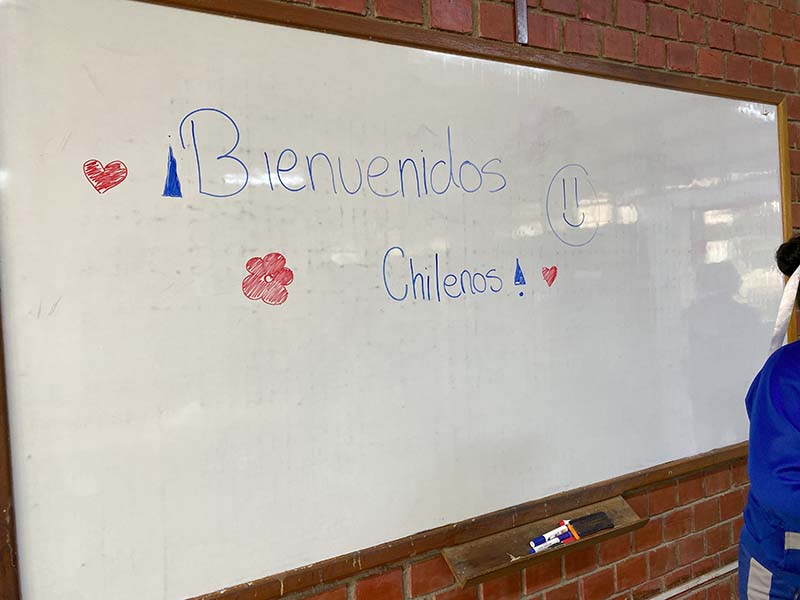 ¡Bienvenidos
Chilenos!